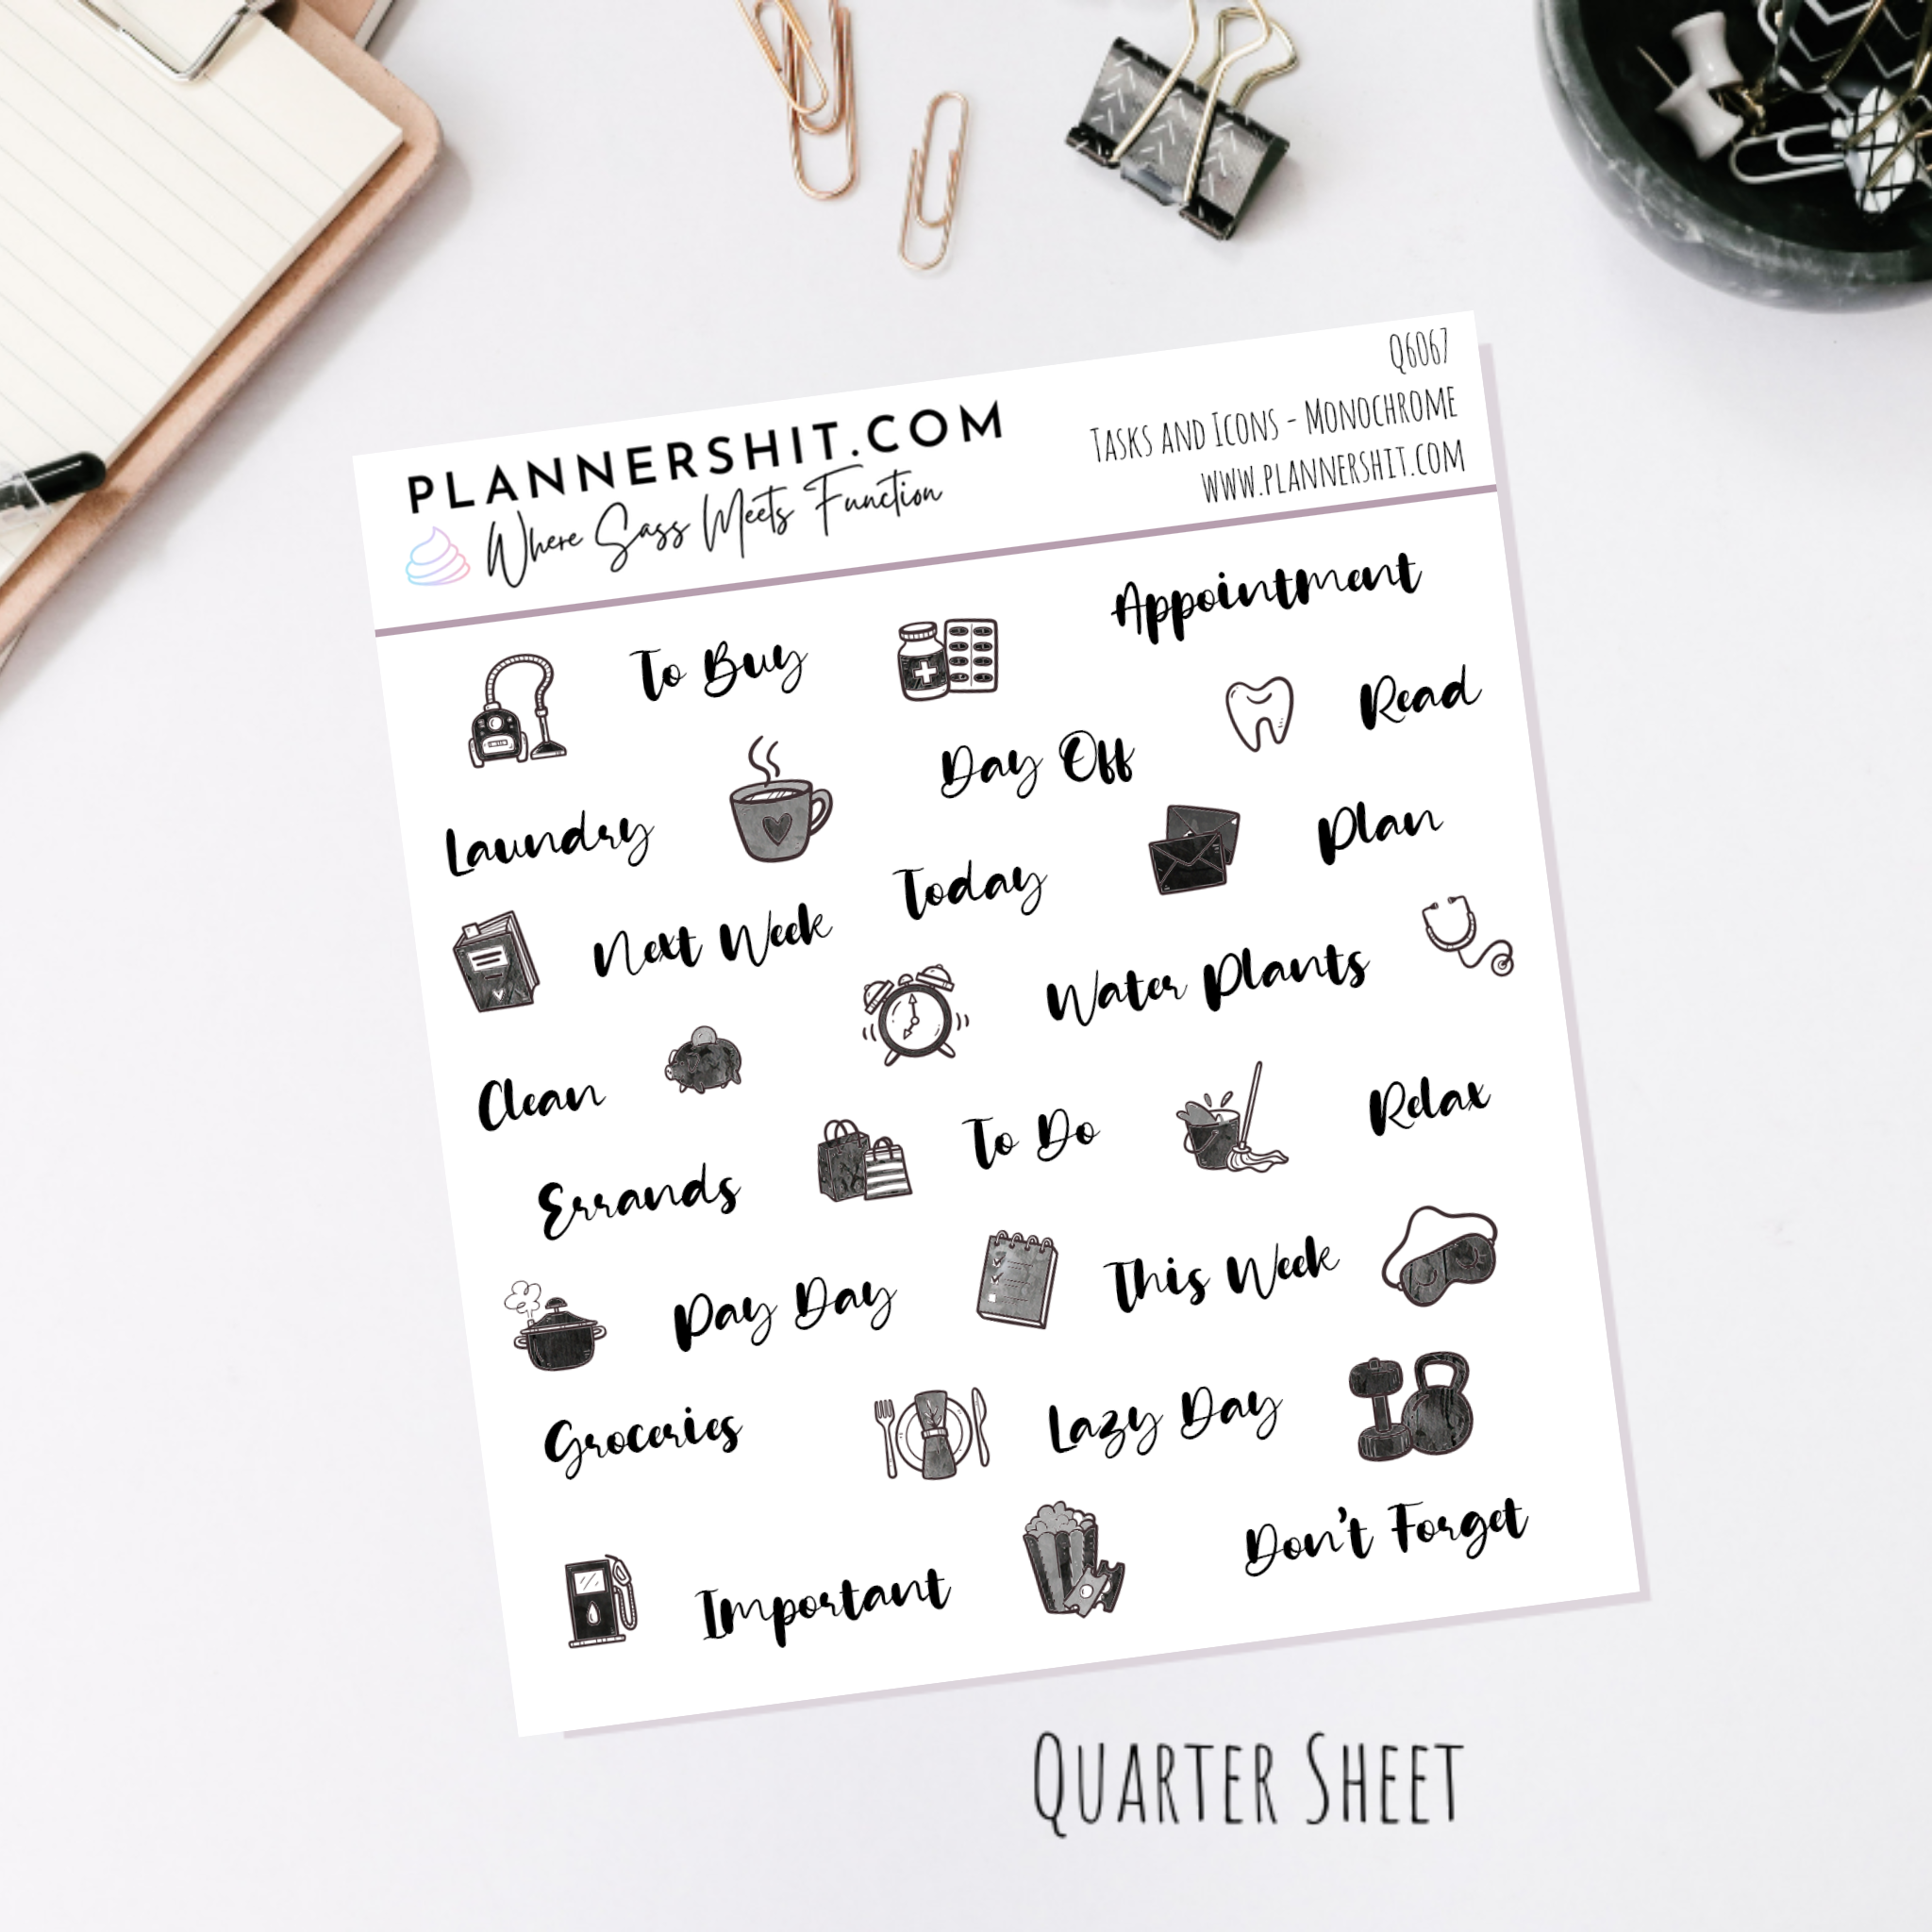 Q6067
PLANNERSHIT.COM
Tasks and Icons - Monochrome
Where Sass Meets Function
www.plannershit.com
To Buy
Appointment
Read
Day Off
Laundry
Plan
Today
Next Week
Water Plants
Clean
To Do
Relax
Errands
This Week
Pay Day
Lazy Day
Groceries
Don't Forget
Important
Quarter Sheet